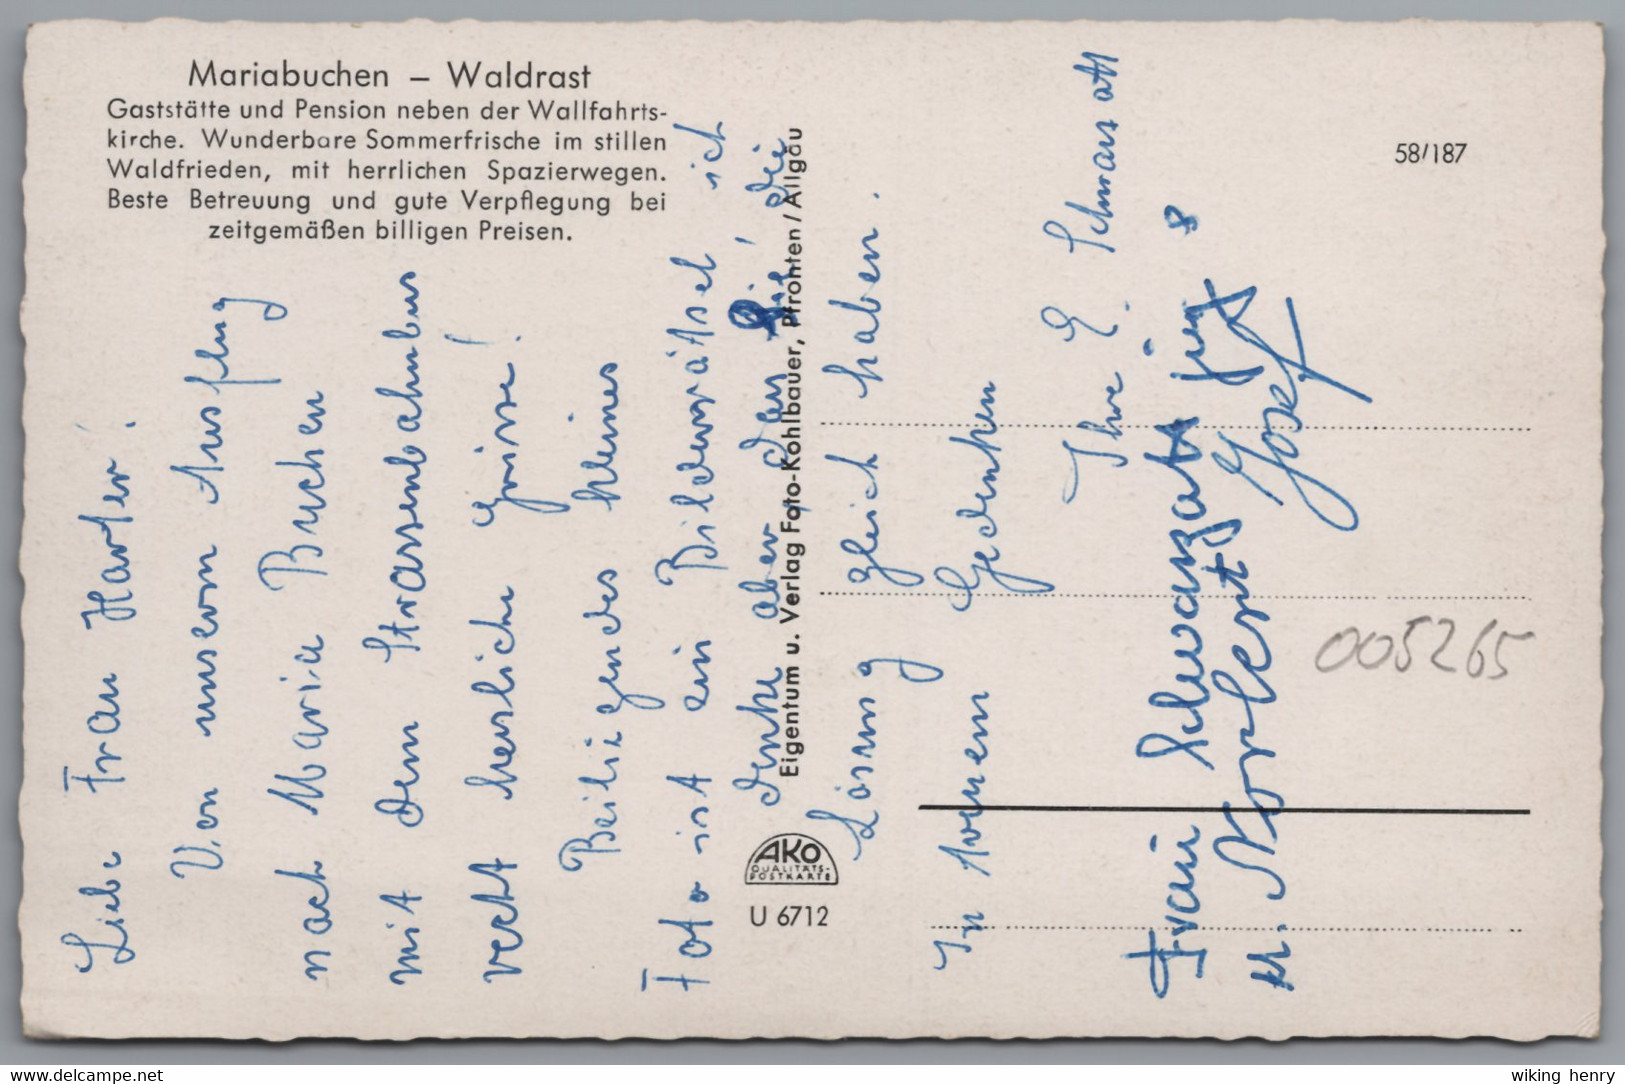 Mariabuchen – Waldrast
Gaststätte und Pension neben der Wallfahrts-
kirche. Wunderbare Sommerfrische im stillen
Waldfrieden, mit herrlichen Spazierwegen.
Beste Betreuung und gute Verpflegung bei
zeitgemäßen billigen Preisen.
58/187
Liebe Frau Harter!
Von unserm Ausflug
nach Maria Buchen
mit dem Strassenbahnbus
recht herzliche Grüsse!
Beiligendes kleines
Foto ist ein Bilderrätsel ich
denke aber das Sie die
Lösung gleich haben.
In treuen Gedenken
Ihre E. Schwarzott
Frau Schwarzott jung
u. Norbert Josef
Eigentum u. Verlag Foto-Kohlbauer, Pfronten/Allgäu
AKO
QUALITÄTS-
POSTKARTE
U 6712
005265
www.delcampe.net
wiking henry